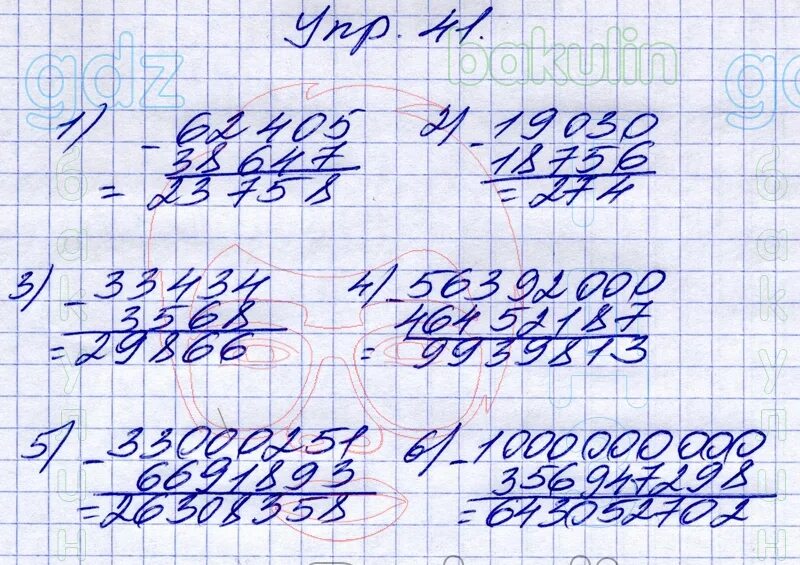 Упр. 41.
gdz bakulin gdz
1) - 62405
38647
= 23758
2) - 19030
18756
= 274
3) - 33434
3568
= 29866
4) - 56392000
46452187
= 9939813
5) - 33000251
6691893
= 26308358
6) - 1000000000
356947298
= 643052702
бакулин
бакулин